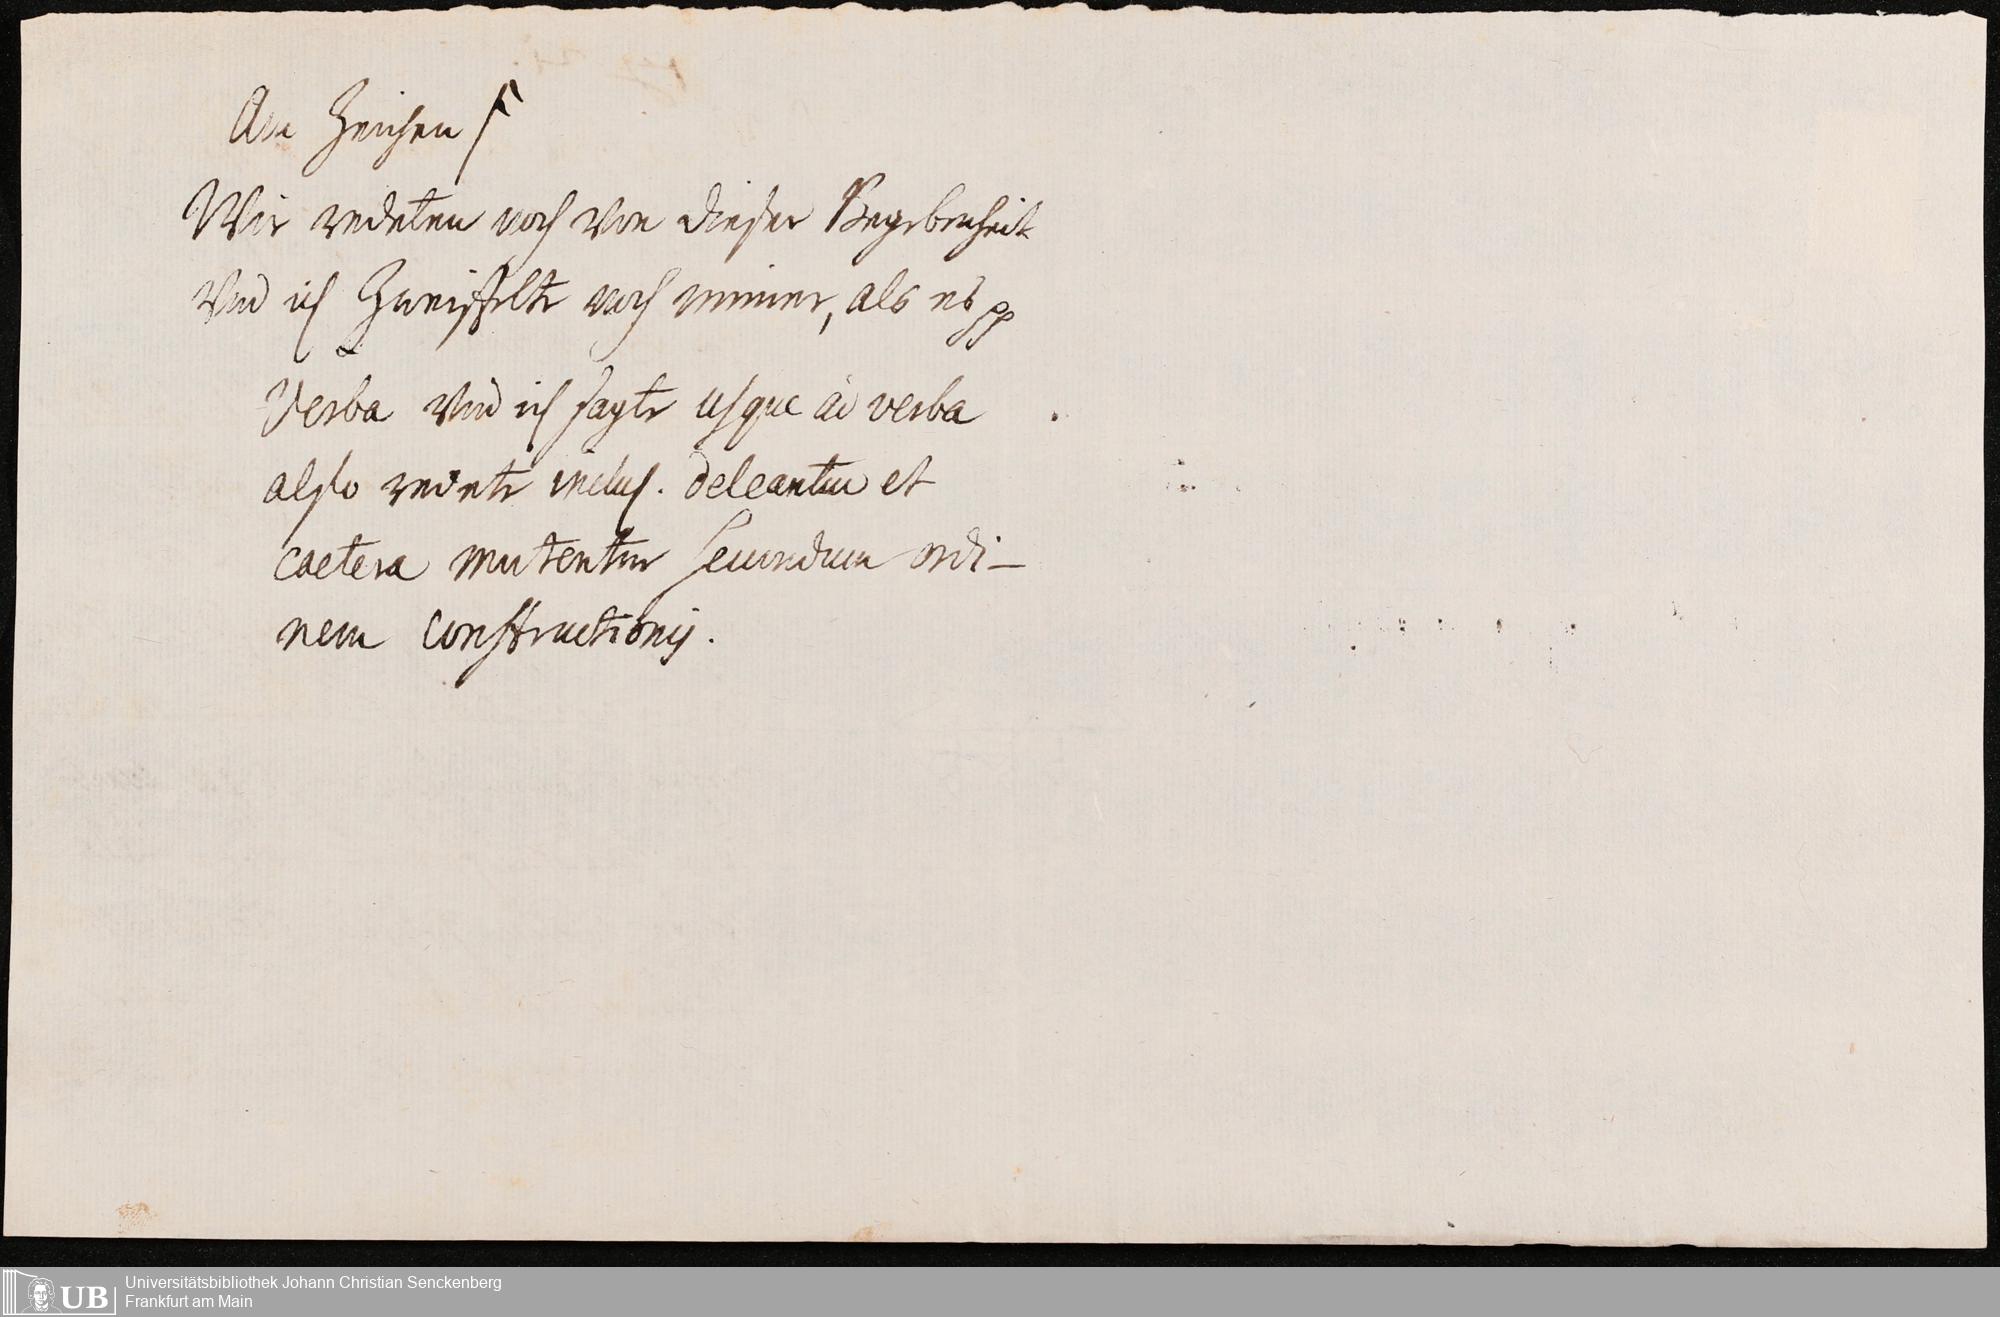 Am Zeichen
Wir redeten noch von dieser Begebenheit
Und ich Zweiffelte noch immer, als es pp
Verba Und ich sagte usque ad verba
also redete inclus. deleantur et
caetera mutentur secundum ordi-
nem constructionis.
UB
Universitätsbibliothek Johann Christian Senckenberg
Frankfurt am Main